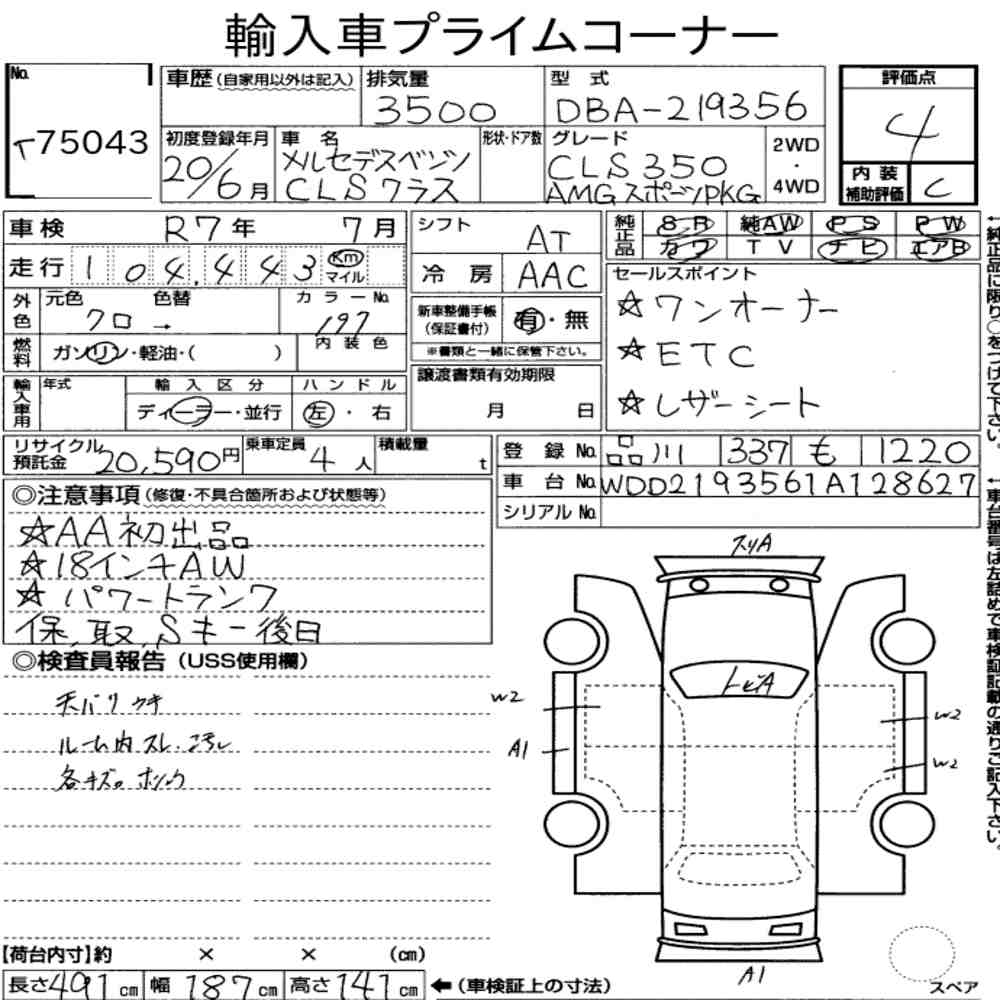 輸入車プライムコーナー
No. 75043
車歴(自家用以外は記入)
排気量 3500
型式 DBA-219356
評価点 4
内装補助評価 C
初度登録年月 20/6月
車名 メルセデスベンツ CLSクラス
形状・ドア数
グレード CLS350 AMGスポーツPKG
2WD・4WD
車検 R7年 7月
走行 104,443 Km マイル
外色 元色 クロ → 色替
カラーNo. 197
燃料 ガソリン・軽油・( )
内装色
輸入車用 年式
輸入区分 ディーラー・並行
ハンドル 左・右
シフト AT
冷房 AAC
新車整備手帳(保証書付) 有・無
※書類と一緒に保管下さい。
譲渡書類有効期限
月 日
純正品 SR 純AW PS PW
カワ TV ナビ エアB
セールスポイント
☆ワンオーナー
☆ETC
☆レザーシート
←純正品に限り○をつけて下さい。
リサイクル預託金 20,590円
乗車定員 4人
積載量 t
登録No. 品川 337 も 1220
車台No. WDD2193561A128627
シリアルNo.
←車台番号は左詰めで車検証記載の通りご記入下さい。
◎注意事項(修復・不具合箇所および状態等)
☆AA初出品
☆18インチAW
☆パワートランク
保,取,Sキー後日
◎検査員報告(USS使用欄)
天バリウキ
ルーム内スレ.ヨゴレ
各キズ。ホソク
スリA
トビA
W2
A1
W2
W2
A1
スペア
【荷台内寸】約 × × (cm)
長さ491cm 幅187cm 高さ141cm ←(車検証上の寸法)